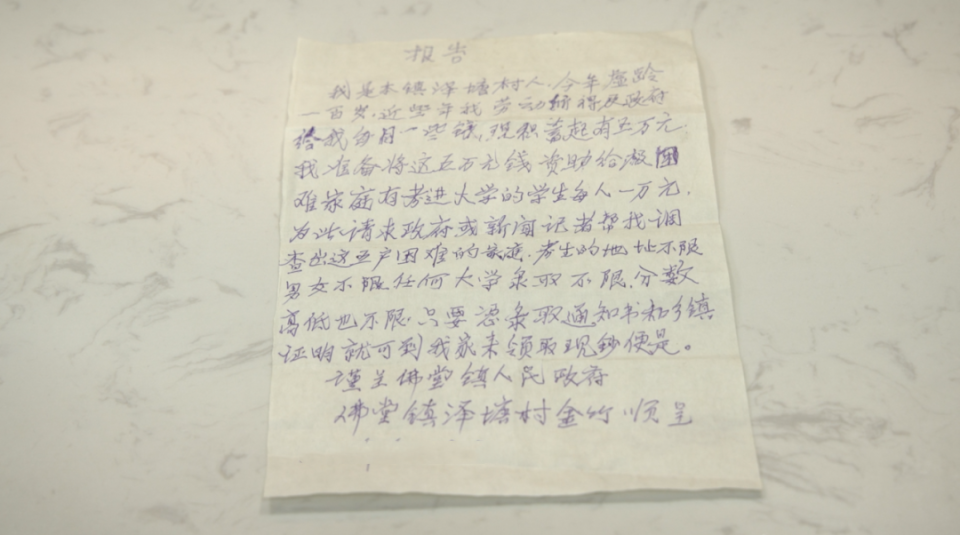 报告
我是本镇泽塘村人.今年整龄
一百岁.近些年我劳动所得及政府
给我每月一些钱,现积蓄起有五万元.
我准备将这五万元钱资助给 困
难家庭有考进大学的学生每人一万元.
为此请求政府或新闻记者帮我调
查出这五户困难的家庭.考生的地址不限
男女不限任何大学录取不限.分数
高低也不限.只要凭录取通知书和乡镇
证明就可到我家来领取现钞便是。
谨呈佛堂镇人民政府
佛堂镇泽塘村金竹顺呈